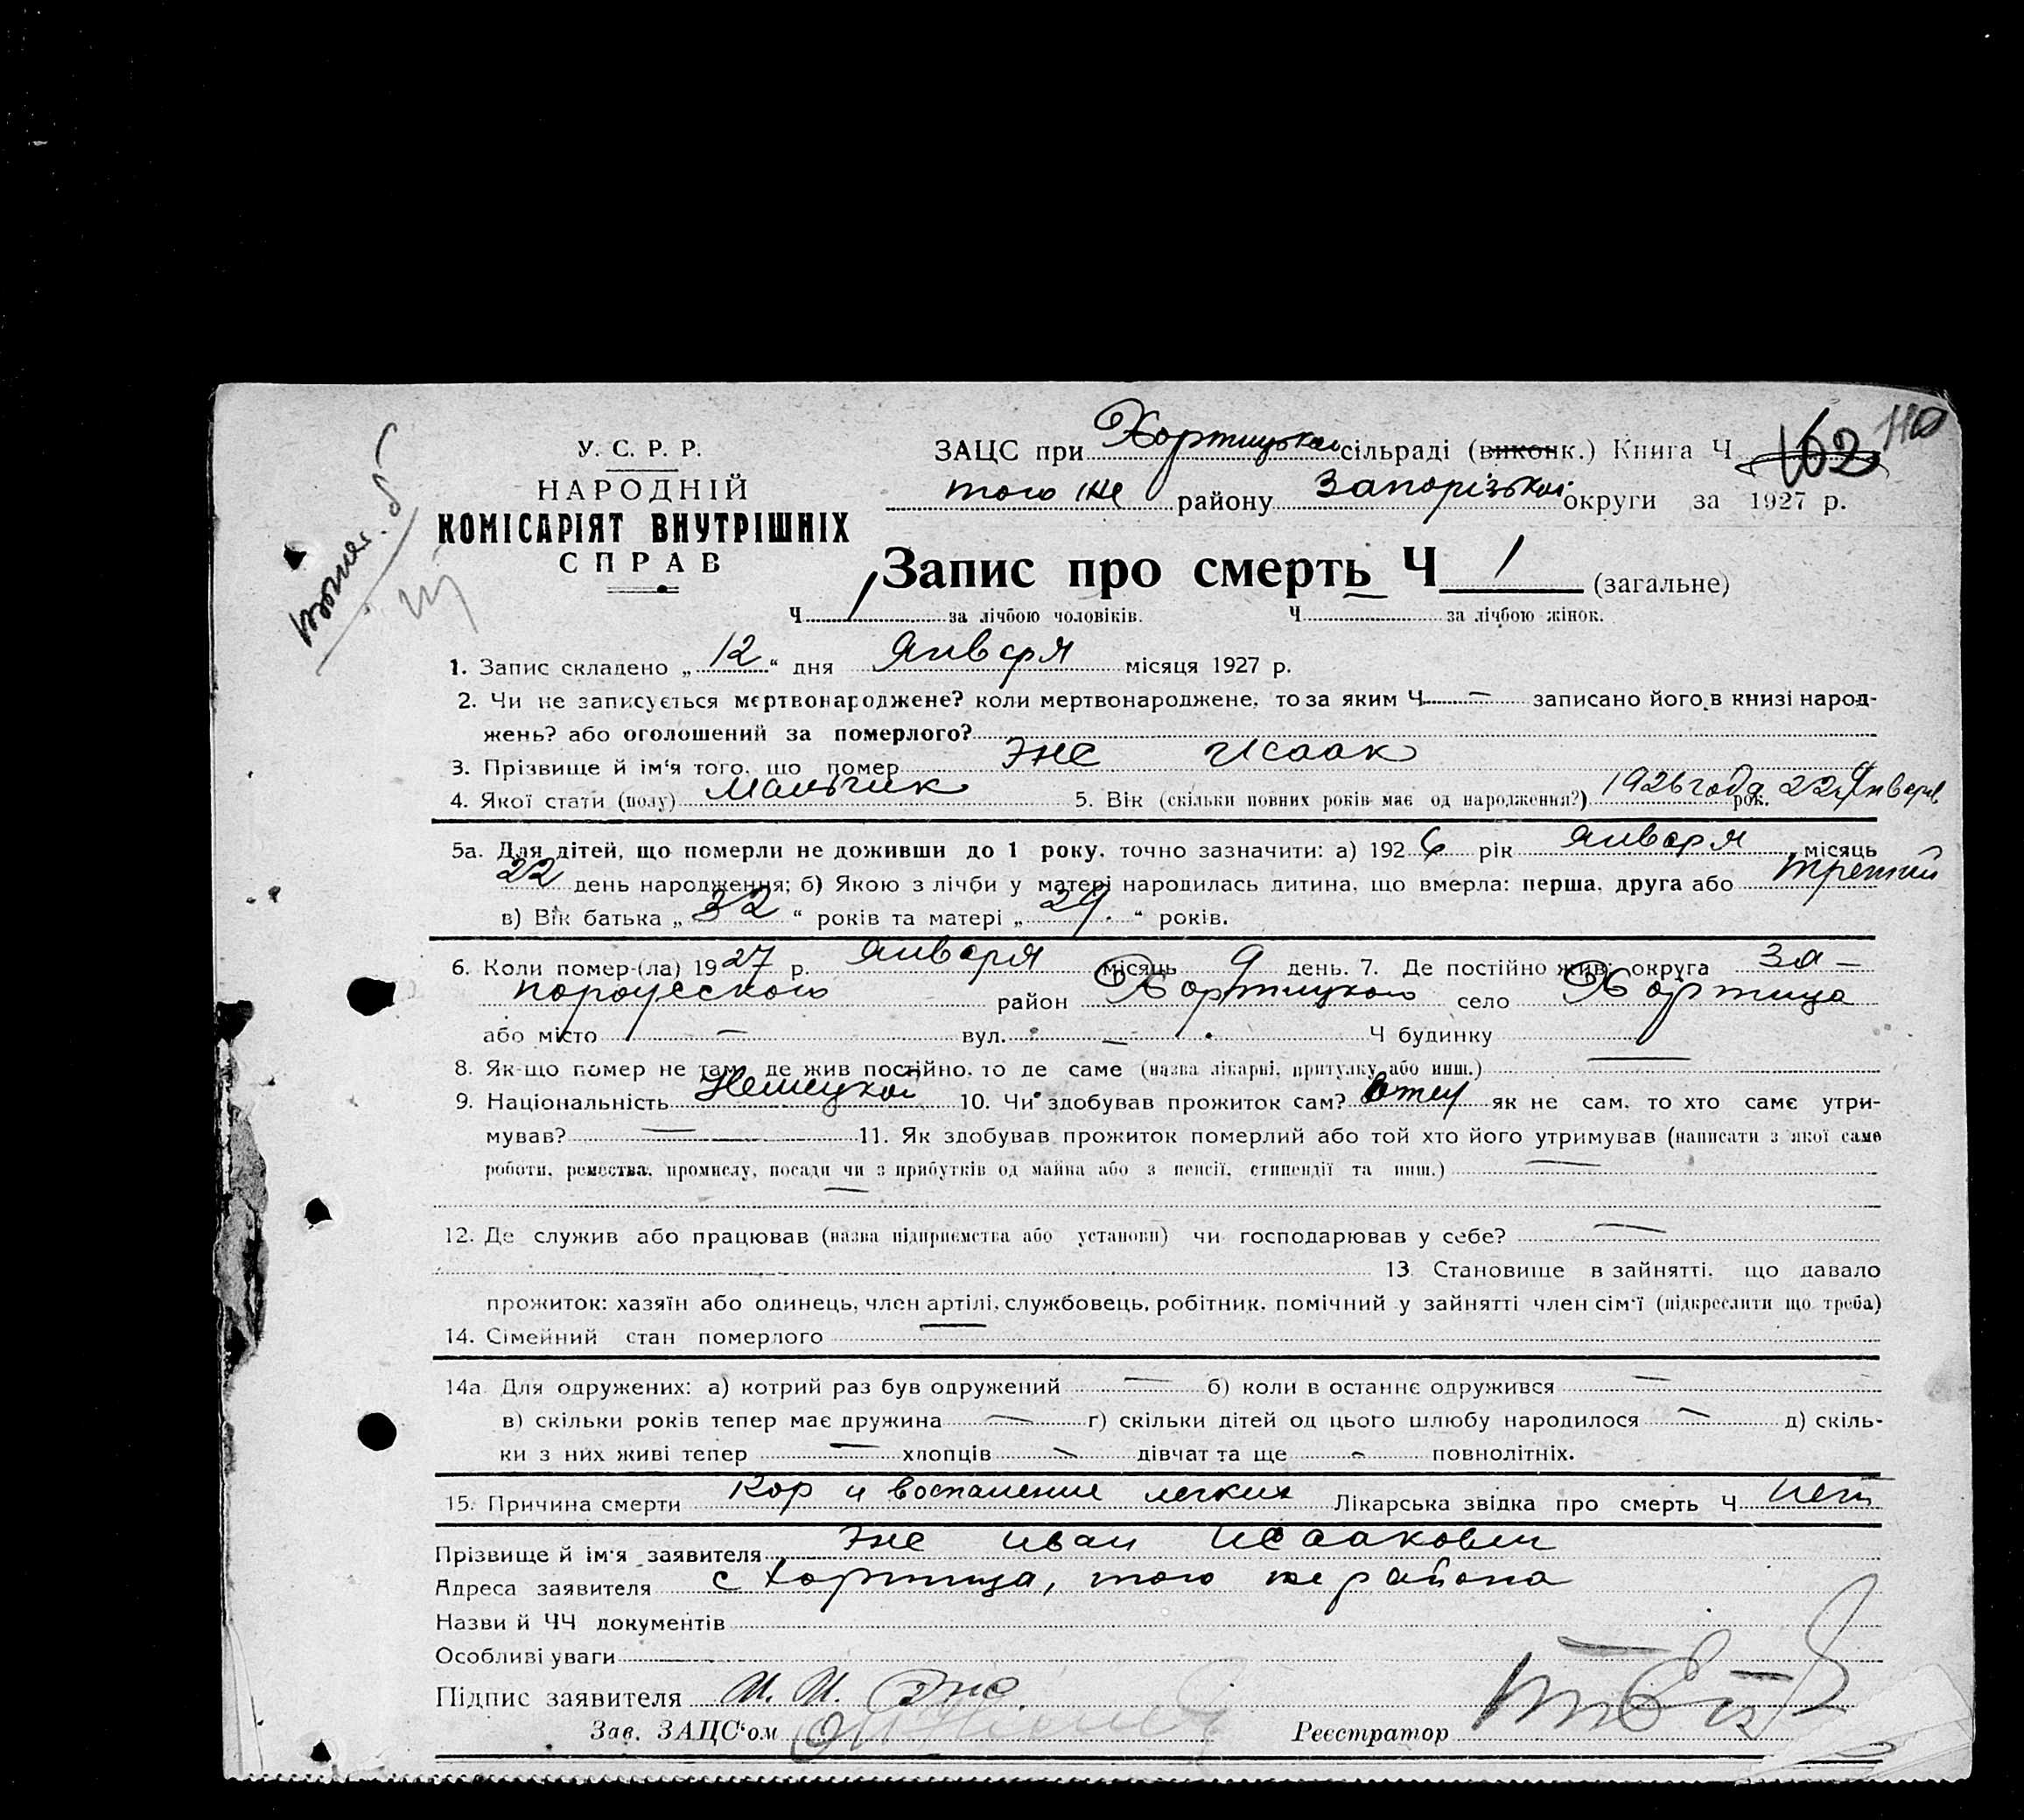 110
У. С. Р. Р.
НАРОДНІЙ
КОМІСАРІЯТ ВНУТРІШНІХ
СПРАВ
ЗАЦС при Хортицькой сільраді (виконк.) Книга Ч 162
того же району Запорізької округи за 1927 р.
Запис про смерть Ч 1 (загальне)
Ч 1 за лічбою чоловіків. Ч за лічбою жінок.
1. Запис складено „ 12 “ дня Января місяця 1927 р.
2. Чи не записується мертвонароджене? коли мертвонароджене, то за яким Ч — записано його в книзі народ-
жень? або оголошений за померлого?
3. Прізвище й ім'я того, що помер Энс Исаак
4. Якої стати (полу) Мальчик 5. Вік (скільки повних років має од народження?) 1926 года рок. 22 Января
5а. Для дітей, що померли не доживши до 1 року, точно зазначити: а) 1926 рік Января місяць
22 день народження; б) Якою з лічби у матері народилась дитина, що вмерла: перша, друга або третий
в) Вік батька „ 32 “ років та матері „ 29. “ років.
6. Коли помер-(ла) 1927 р. Января місяць 9 день. 7. Де постійно жив: округа За-
порожского район Хортицкого село Хортица
або місто — вул. — Ч будинку
8. Як-що помер не там, де жив постійно, то де саме (назва лікарні, притулку або инш.) —
9. Національність Немецкой 10. Чи здобував прожиток сам? Отец як не сам, то хто саме утри-
мував? — 11. Як здобував прожиток померлий або той хто його утримував (написати з якої саме
роботи, ремества, промислу, посади чи з прибутків од майна або з пенсії, стипендії та инш.) —
—
12. Де служив або працював (назва підприємства або установи) чи господарював у себе? —
13 Становище в зайнятті, що давало
прожиток: хазяїн або одинець, член артілі, службовець, робітник, помічний у зайнятті член сім'ї (підкреслити що треба)
14. Сімейний стан померлого —
14а Для одружених: а) котрий раз був одружений — б) коли в останнє одружився —
в) скільки років тепер має дружина — г) скільки дітей од цього шлюбу народилося — д) скіль-
ки з них живі тепер — хлопців — дівчат та ще - повнолітніх.
15. Причина смерти Кор и воспаление легких Лікарська звідка про смерть Ч нет
Прізвище й ім'я заявителя Энс Иван Исаакович
Адреса заявителя с Хортица, того же района
Назви й ЧЧ документів
Особливі уваги
Підпис заявителя И. И. Энс.
Зав. ЗАЦС'ом Реєстратор